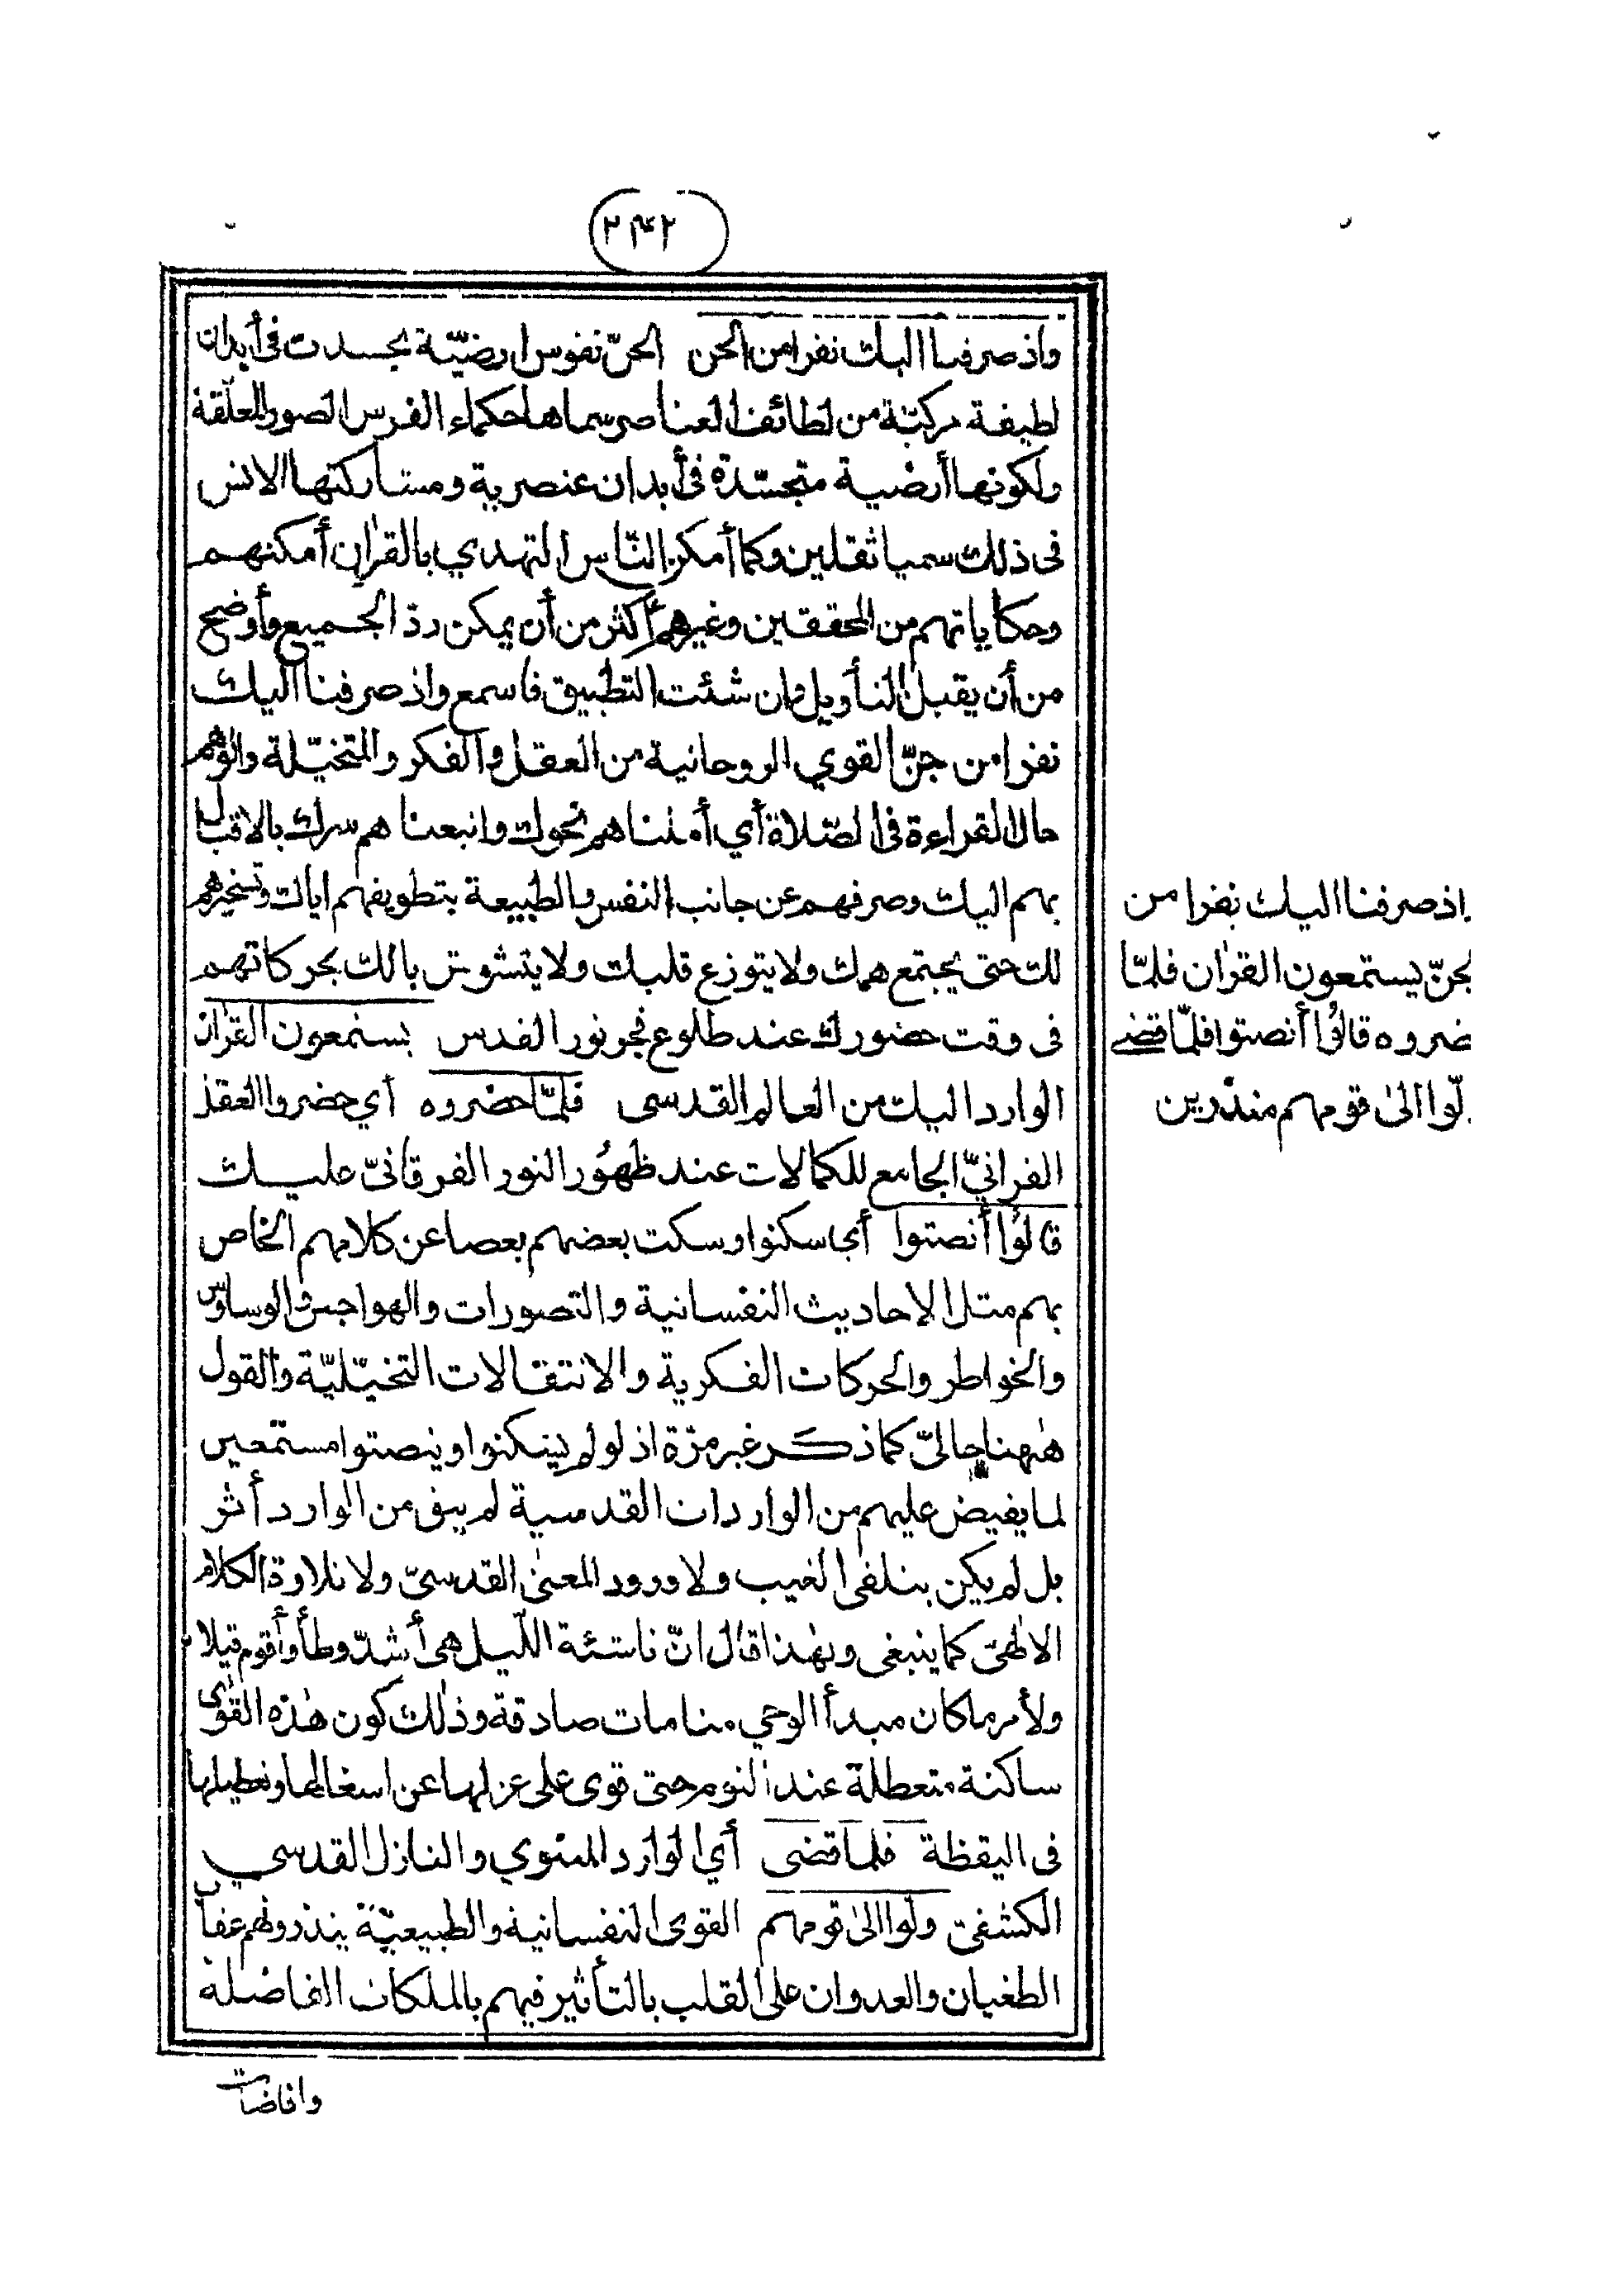 ٢٤٢
واذ صرفنا اليك نفرا من الجن الجنّ نفوس ارضيّة تجسدت في أبدان
لطيفة مركبّة من لطائف العناصر سماها حكماء الفرس الصور المعلّقة
ولكونها أرضية متجسّدة في أبدان عنصرية ومشاركتها الانس
في ذلك سميا ثقلين وكما أمكن النّاس التهدي بالقرآن أمكنهم
وحكاياتهم من المحققين وغيرهم أكثر من أن يمكن ردّ الجميع وأوضح
من أن يقبل التأويل وان شئت التطبيق فاسمع واذ صرفنا اليك
نفرا من جنّ القوي الروحانية من العقل والفكر والمتخيّلة والوهم
حال القراءة في الصّلاة أي أملناهم نحوك واتبعناهم سرك بالاقبال
بهم اليك وصرفهم عن جانب النفس والطبيعة بتطويفهم اياك وتسخيرهم
لك حتى يجتمع همك ولا يتوزع قلبك ولا يتشوش بالك بحركاتهم
في وقت حضورك عند طلوع فجر نور القدس يستمعون القرآن
الوارد اليك من العالم القدسى فلمّا حضروه أي حضروا العقل
القرانيّ الجامع للكمالات عند ظهُور النور الفرقانيّ عليك
قالوُا أنصتوا أي اسكنوا وسكت بعضهم بعضا عن كلامهم الخاص
بهم مثل الاحاديث النفسانية والتصورات والهواجس والوساوس
والخواطر والحركات الفكرية والانتقالات التخيّليّة والقول
هٰهنا حاليّ كما ذكر غير مرّة اذ لو لم يسكنوا وينصتوا مستمعين
لما يفيض عليهم من الواردات القدسية لم يبق من الوارد أثر
بل لم يكن يتلقى الغيب ولا ورود المعنى القدسيّ ولا تلاوة الكلام
الالٰهيّ كما ينبغى ولهٰذا قال انّ ناشئة اللّيل هى أشدّ وطأ وأقوم قيلا
ولأمر ما كان مبدأ الوحي منامات صادقة وذٰلك كون هٰذه القوٰى
ساكنة متعطلة عند النوم حتى قوى على عزلها عن اشغالها وتعطيلها
في اليقظة فلما قضى أي الوارد المعنوي والنازل القدسي
الكشفىّ ولّوا الىٰ قومهم القوى النفسانية والطبيعيّة ينذرونهم عقاب
الطغيان والعدوان على القلب بالتأثير فيهم بالملكات الفاضلة
وافاضات
اذ صرفنا اليك نفرا من
لجنّ يستمعون القرآن فلمّا
ضروه قالوُا أنصتوا فلمّا قضے
لّوا الىٰ قومهم منذرين